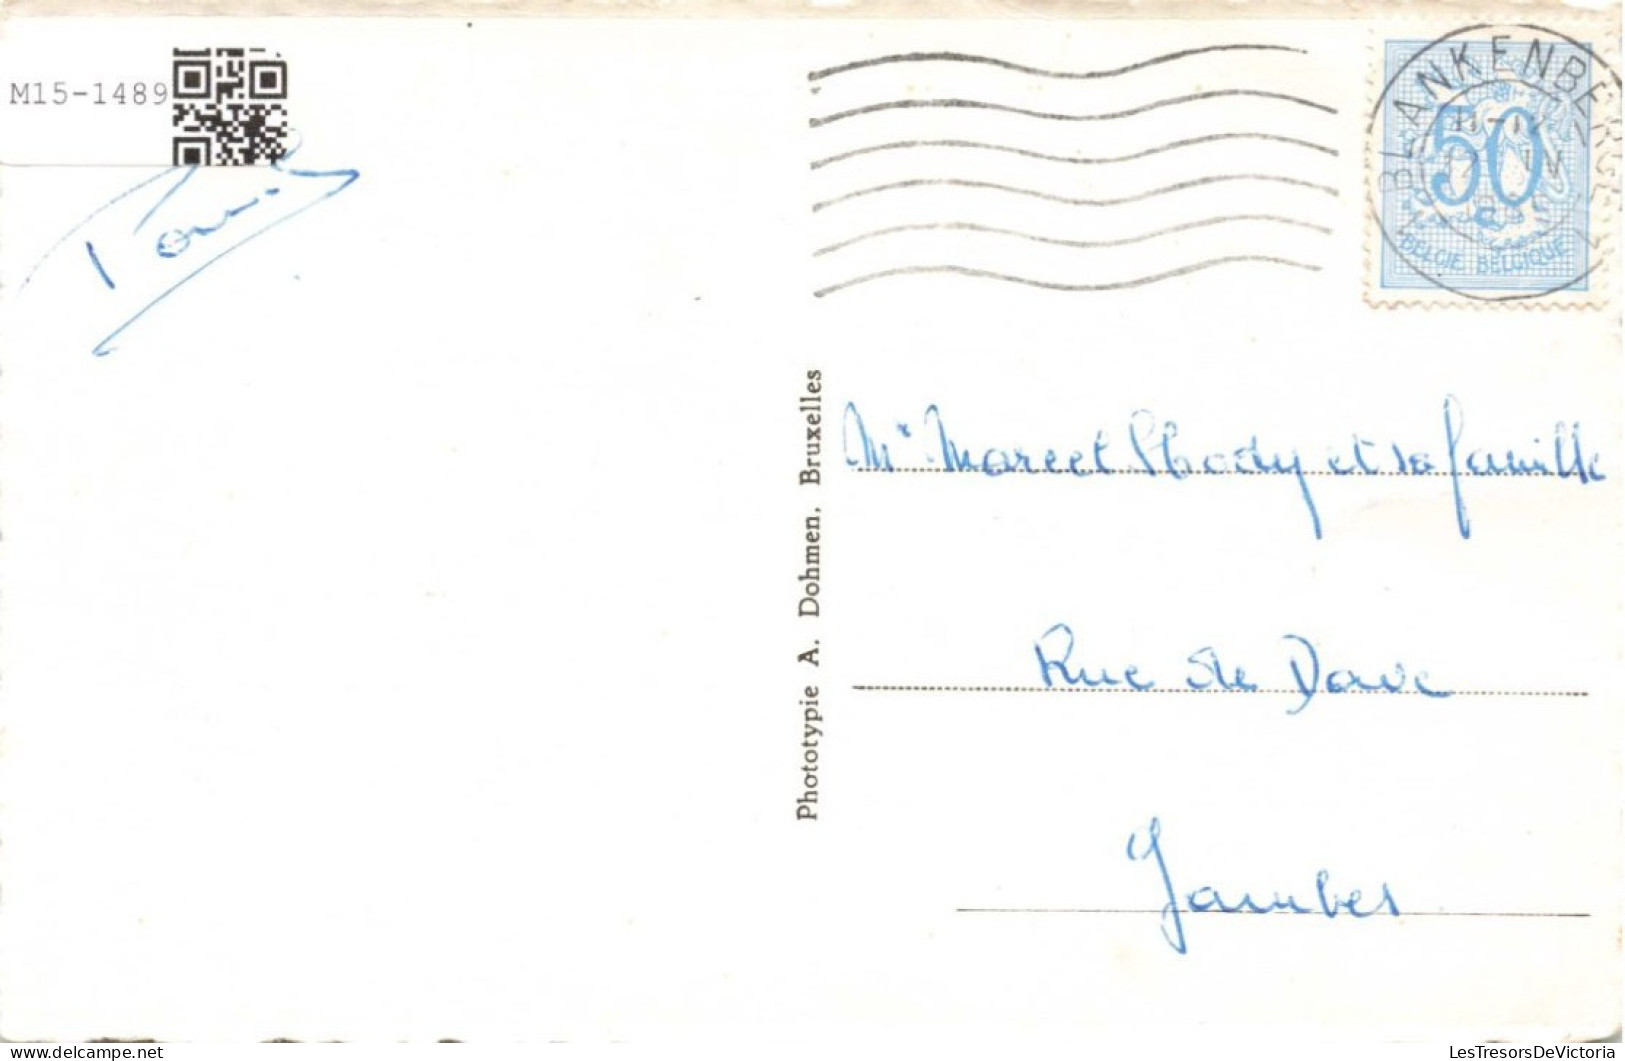 M15-1489
BLANKENBERGE
50
BELGIE BELGIQUE
Phototypie A. Dohmen, Bruxelles
Mr Marcel et sa famille
Rue de Dave
Jambes
LesTresorsDeVictoria